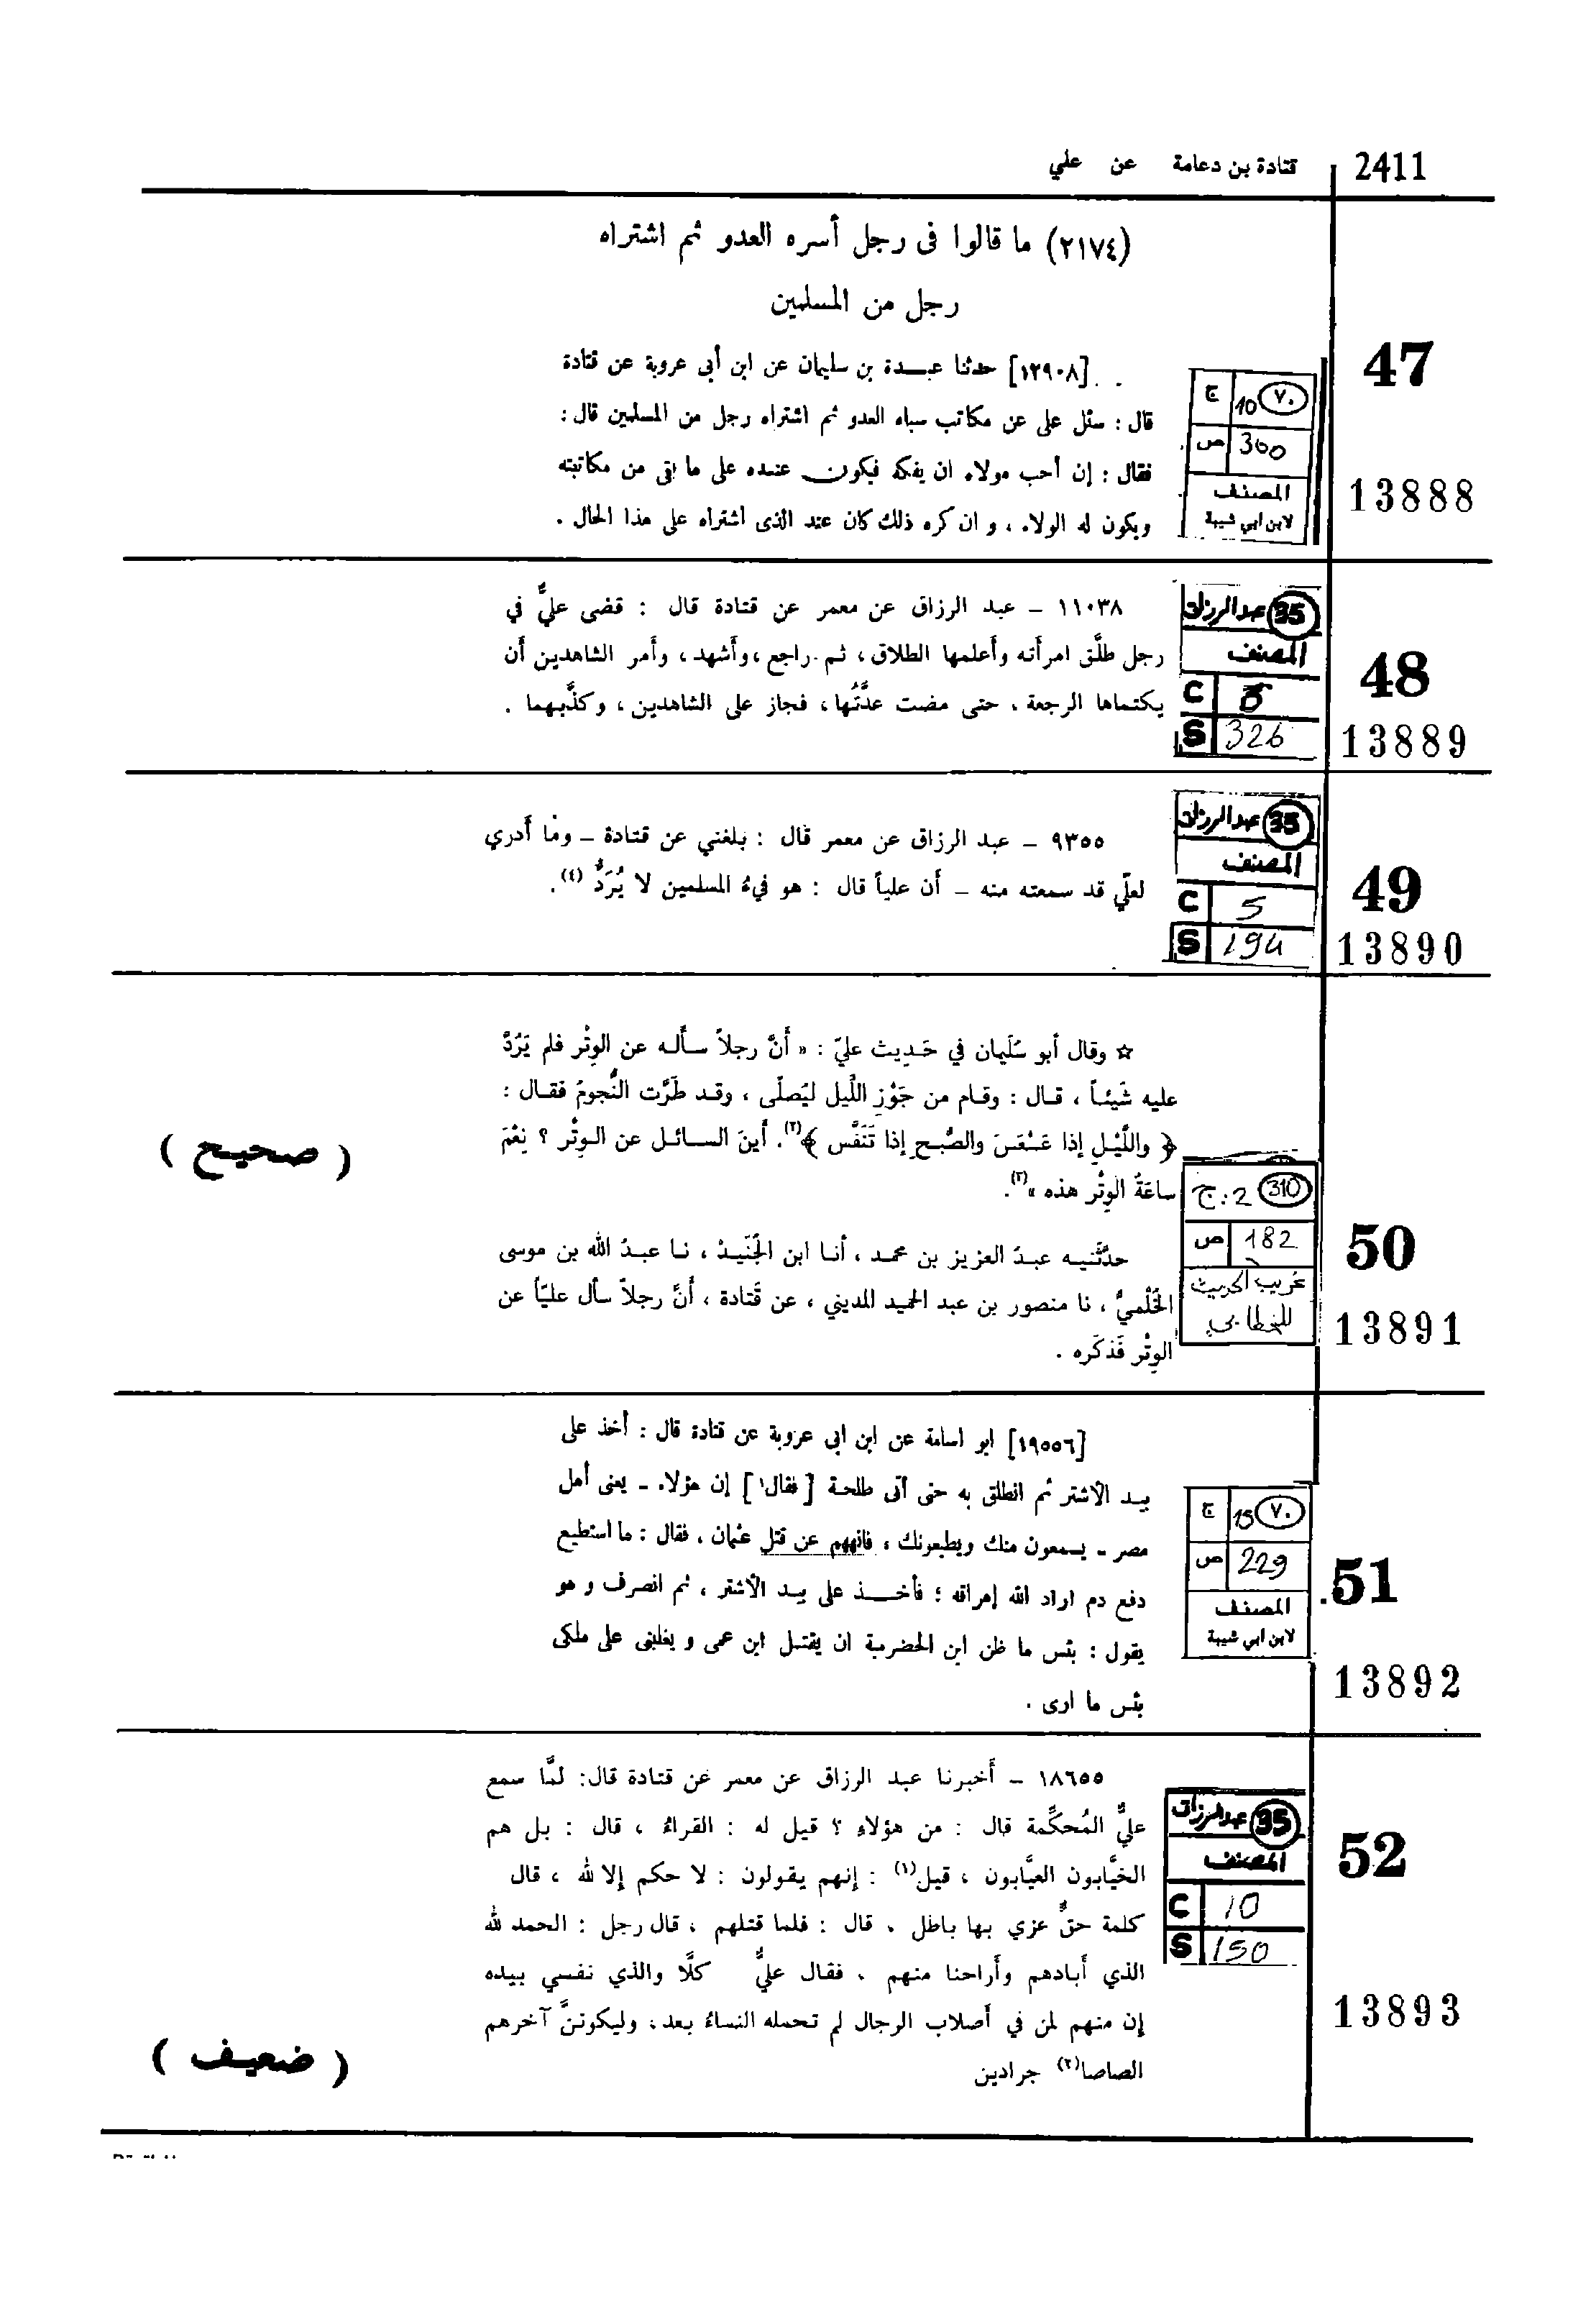 2411 قتادة بن دعامة عن علي
(٢١٧٤) ما قالوا فى رجل أسره العدو ثم اشتراه
رجل من المسلمين
47
[١٢٩٠٨] حدثنا عبدة بن سليمان عن ابن أبى عروبة عن قتادة
قال : سئل على عن مكاتب سباه العدو ثم اشتراه رجل من المسلمين قال :
فقال : إن أحب مولاه ان يفكه فيكون عنده على ما بقى من مكاتبته
ويكون له الولاء ، و ان كره ذلك كان عند الذى اشتراه على هذا الحال .
٧٠ 10 ج
300 ص
المصنف
لابن ابي شيبة
13888
١١٠٣٨ – عبد الرزاق عن معمر عن قتادة قال : قضى عليٌّ في
رجل طلَّق امرأته وأعلمها الطلاق ، ثم راجع ، وأشهد ، وأمر الشاهدين أن
يكتماها الرجعة ، حتى مضت عدَّتُها ، فجاز على الشاهدين ، وكذَّبهما .
35 عبد الرزاق
المصنف
C
S 326
48
13889
٩٣٥٥ – عبد الرزاق عن معمر قال : بلغني عن قتادة – وما أدري
لعلّي قد سمعته منه – أن علياً قال : هو فيءُ المسلمين لا يُرَدُّ (٤).
35 عبد الرزاق
المصنف
C 5
S 194
49
13890
☆ وقال أبو سُلَيمان في حَديث عليّ : « أنَّ رجلاً سأله عن الوِتْر فلم يَرُدَّ
عليه شَيئاً ، قال : وقام من جَوْزِ اللّيل ليُصلّى ، وقد طَرَّت النُّجومُ فقال :
﴿ واللَّيْلِ إذا عَسْعَسَ والصُّبحِ إذا تَنَفَّس ﴾(٢). أينَ السائل عن الوِتْر ؟ نِعْمَ
ساعَةُ الوِتْر هذه »(٣).
حدَّثَنيه عبدُ العزيز بن محمد ، أنا ابن الجُنَيدْ ، نا عبدُ الله بن موسى
الخَلْميُّ ، نا منصور بن عبد الحميد المديني ، عن قَتادة ، أنَّ رجلاً سأل عليّاً عن
الوِتْر فَذكَره .
( صحيح )
310 2: ج
182 ص
غريب الحديث
للخطابي
50
13891
[١٩٥٥٦] ابو اسامة عن ابن ابى عروبة عن قتادة قال : أخذ على
بيد الأشتر ثم انطلق به حتى أتى طلحة [ فقال١ ] إن هؤلاء – يعنى أهل
مصر – يسمعون منك ويطيعونك ، فانههم عن قتل عثمان ، فقال : ما استطيع
دفع دم اراد الله إهراقه ؛ فأخذ على بيد الأشتر ، ثم انصرف و هو
يقول : بئس ما ظن ابن الحضرمية ان يقتل ابن عمى و يغلبنى على ملكى
بئس ما ارى .
٧٠ 15 ج
229 ص
المصنف
لابن ابي شيبة
51
13892
١٨٦٥٥ – أخبرنا عبد الرزاق عن معمر عن قتادة قال: لمَّا سمع
عليٌّ المُحكِّمة قال : من هؤلاءِ ؟ قيل له : القراءُ ، قال : بل هم
الخيَّابون العيَّابون ، قيل(١) : إنهم يقولون : لا حكم إلا لله ، قال
كلمة حقٍّ عزي بها باطل . قال : فلما قتلهم ، قال رجل : الحمد لله
الذي أبادهم وأراحنا منهم . فقال عليٌّ كلَّا والذي نفسي بيده
إن منهم لمن في أصلاب الرجال لم تحمله النساءُ بعد ، وليكوننَّ آخرهم
الصاصا(٢) جرادين
( ضعيف )
35 عبد الرزاق
المصنف
C 10
S 150
52
13893